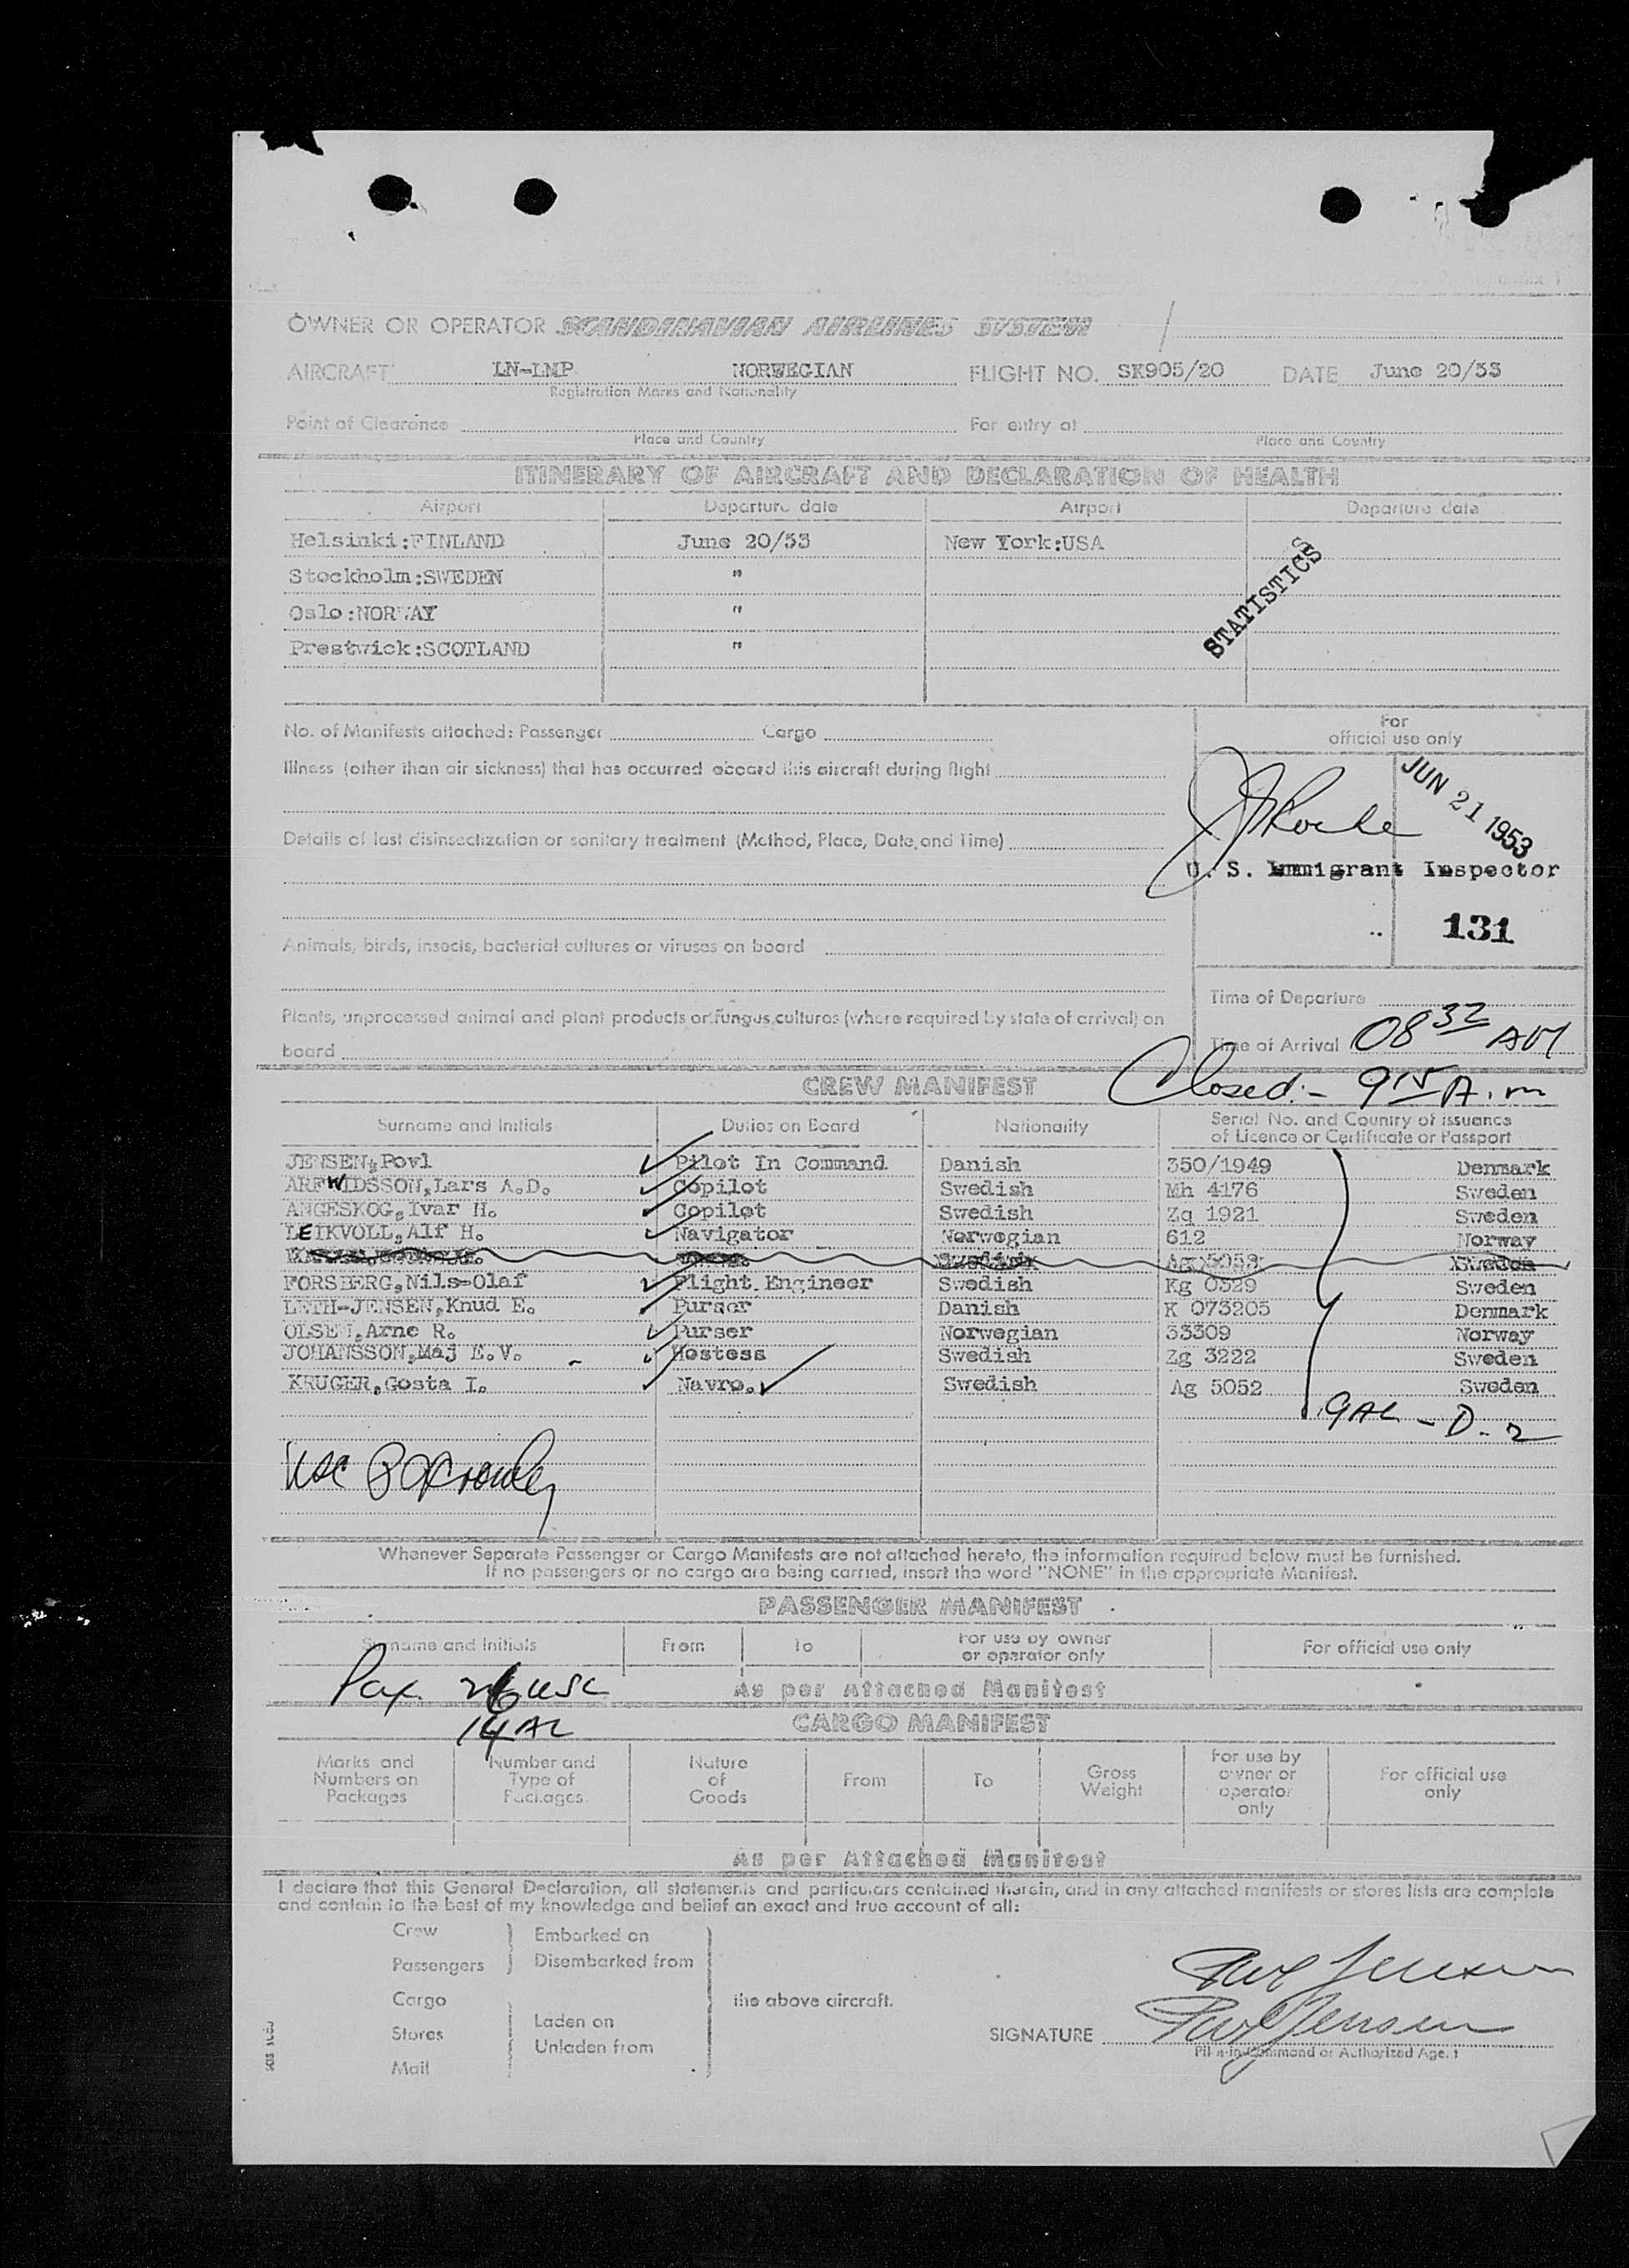 OWNER OR OPERATOR SCANDINAVIAN AIRLINES SYSTEM
AIRCRAFT LN-LMP NORWEGIAN FLIGHT NO. SK905/20 DATE June 20/53
Registration Marks and Nationality
Point of Clearance For entry at
Place and Country Place and Country
ITINERARY OF AIRCRAFT AND DECLARATION OF HEALTH
Airport Departure date Airport Departure date
Helsinki:FINLAND June 20/53 New York:USA
Stockholm:SWEDEN "
Oslo:NORWAY "
Prestwick:SCOTLAND "
STATISTICS
No. of Manifests attached: Passenger Cargo
For
official use only
Illness (other than air sickness) that has occurred aboard this aircraft during flight
JUN 21 1953
Details of last disinsectization or sanitary treatment (Method, Place, Date, and Time)
U. S. Immigrant Inspector
131
Animals, birds, insects, bacterial cultures or viruses on board
Time of Departure
Plants, unprocessed animal and plant products or fungus cultures (where required by state of arrival) on
board
Time of Arrival 08 32 AM
Closed:- 9 15 A.m
CREW MANIFEST
Surname and Initials Duties on Board Nationality Serial No. and Country of issuance
of Licence or Certificate or Passport
JENSEN, Povl Pilot In Command Danish 350/1949 Denmark
ARFWIDSSON, Lars A.D. Copilot Swedish Mh 4176 Sweden
ANGESKOG, Ivar H. Copilot Swedish Zq 1921 Sweden
LEIKVOLL, Alf H. Navigator Norwegian 612 Norway
Swedish Sweden
FORSBERG, Nils-Olaf Flight Engineer Swedish Kg 0329 Sweden
LETH-JENSEN, Knud E. Purser Danish K 073205 Denmark
OLSEN, Arne R. Purser Norwegian 33309 Norway
JOHANSSON, Maj E.V. - Hostess Swedish Zg 3222 Sweden
KRUGER, Gosta I. Navro. Swedish Ag 5052 Sweden
9 AL - D-2
Whenever Separate Passenger or Cargo Manifests are not attached hereto, the information required below must be furnished.
If no passengers or no cargo are being carried, insert the word "NONE" in the appropriate Manifest.
PASSENGER MANIFEST
Surname and Initials From To For use by owner
or operator only For official use only
Pax. 26 USC As per Attached Manifest
14 AL CARGO MANIFEST
Marks and
Numbers on
Packages Number and
Type of
Packages Nature
of
Goods From To Gross
Weight For use by
owner or
operator
only For official use
only
As per Attached Manifest
I declare that this General Declaration, all statements and particulars contained therein, and in any attached manifests or stores lists are complete
and contain to the best of my knowledge and belief an exact and true account of all:
Crew Embarked on
Passengers Disembarked from
Cargo the above aircraft.
Stores Laden on
Unladen from
Mail
Povl Jensen
SIGNATURE Povl Jensen
Pilot-in-Command or Authorized Agent